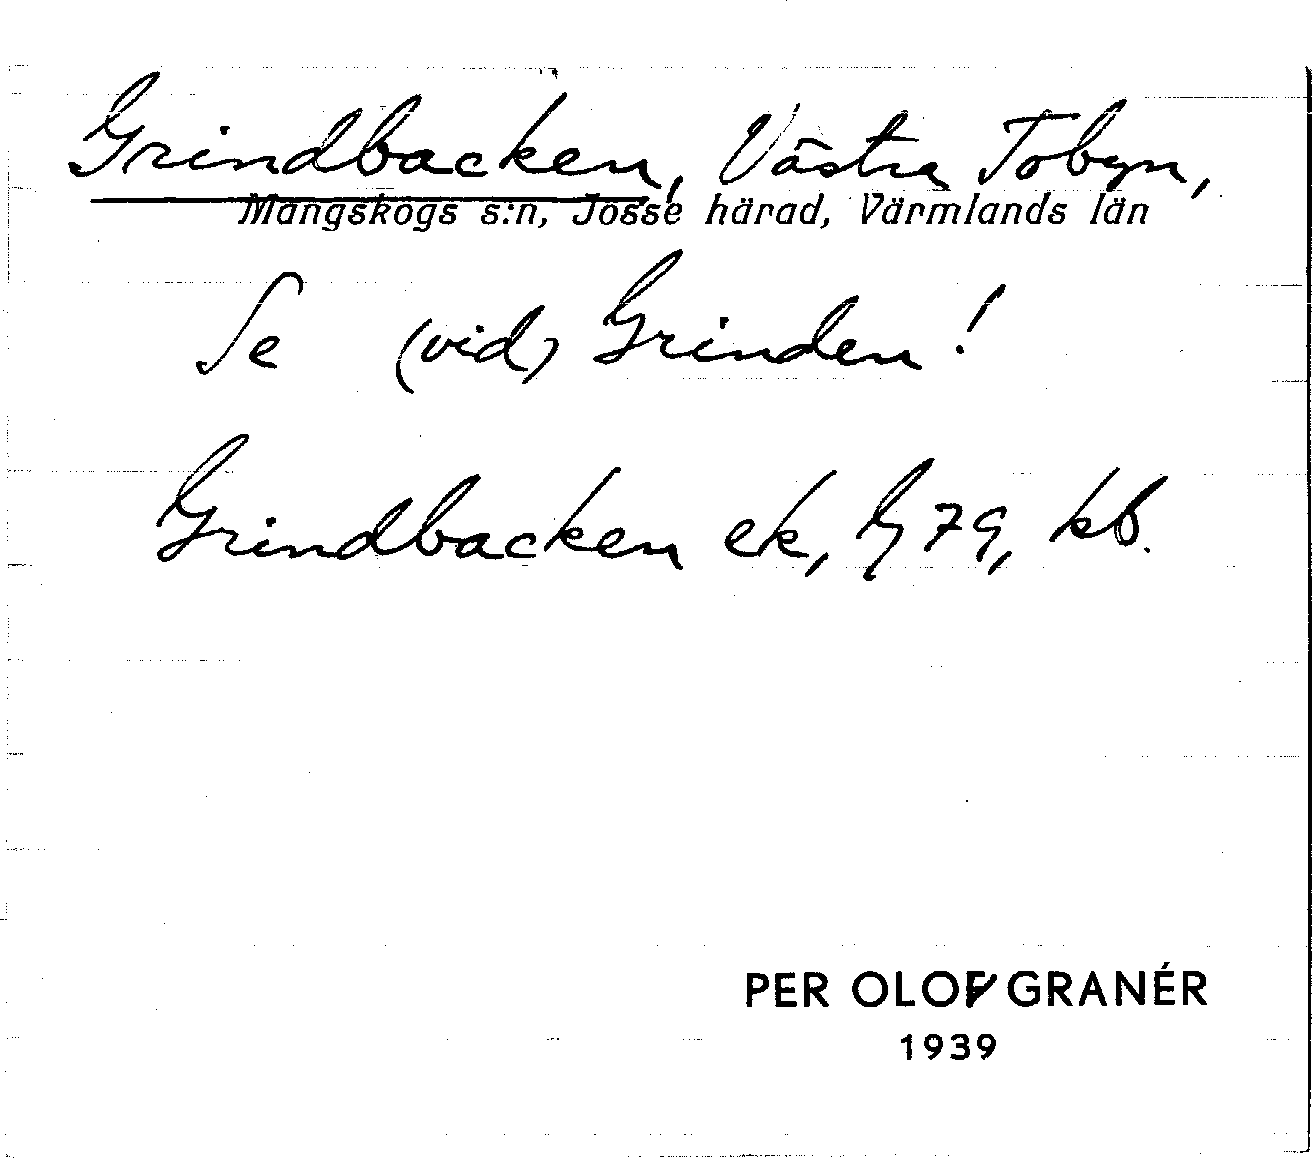 Grindbacken, Västra Tobyn,
Mangskogs s:n, Jösse härad, Värmlands län
Se (vid) Grinden!
Grindbacken ek, G 79, kb.
PER OLOF GRANÉR
1939